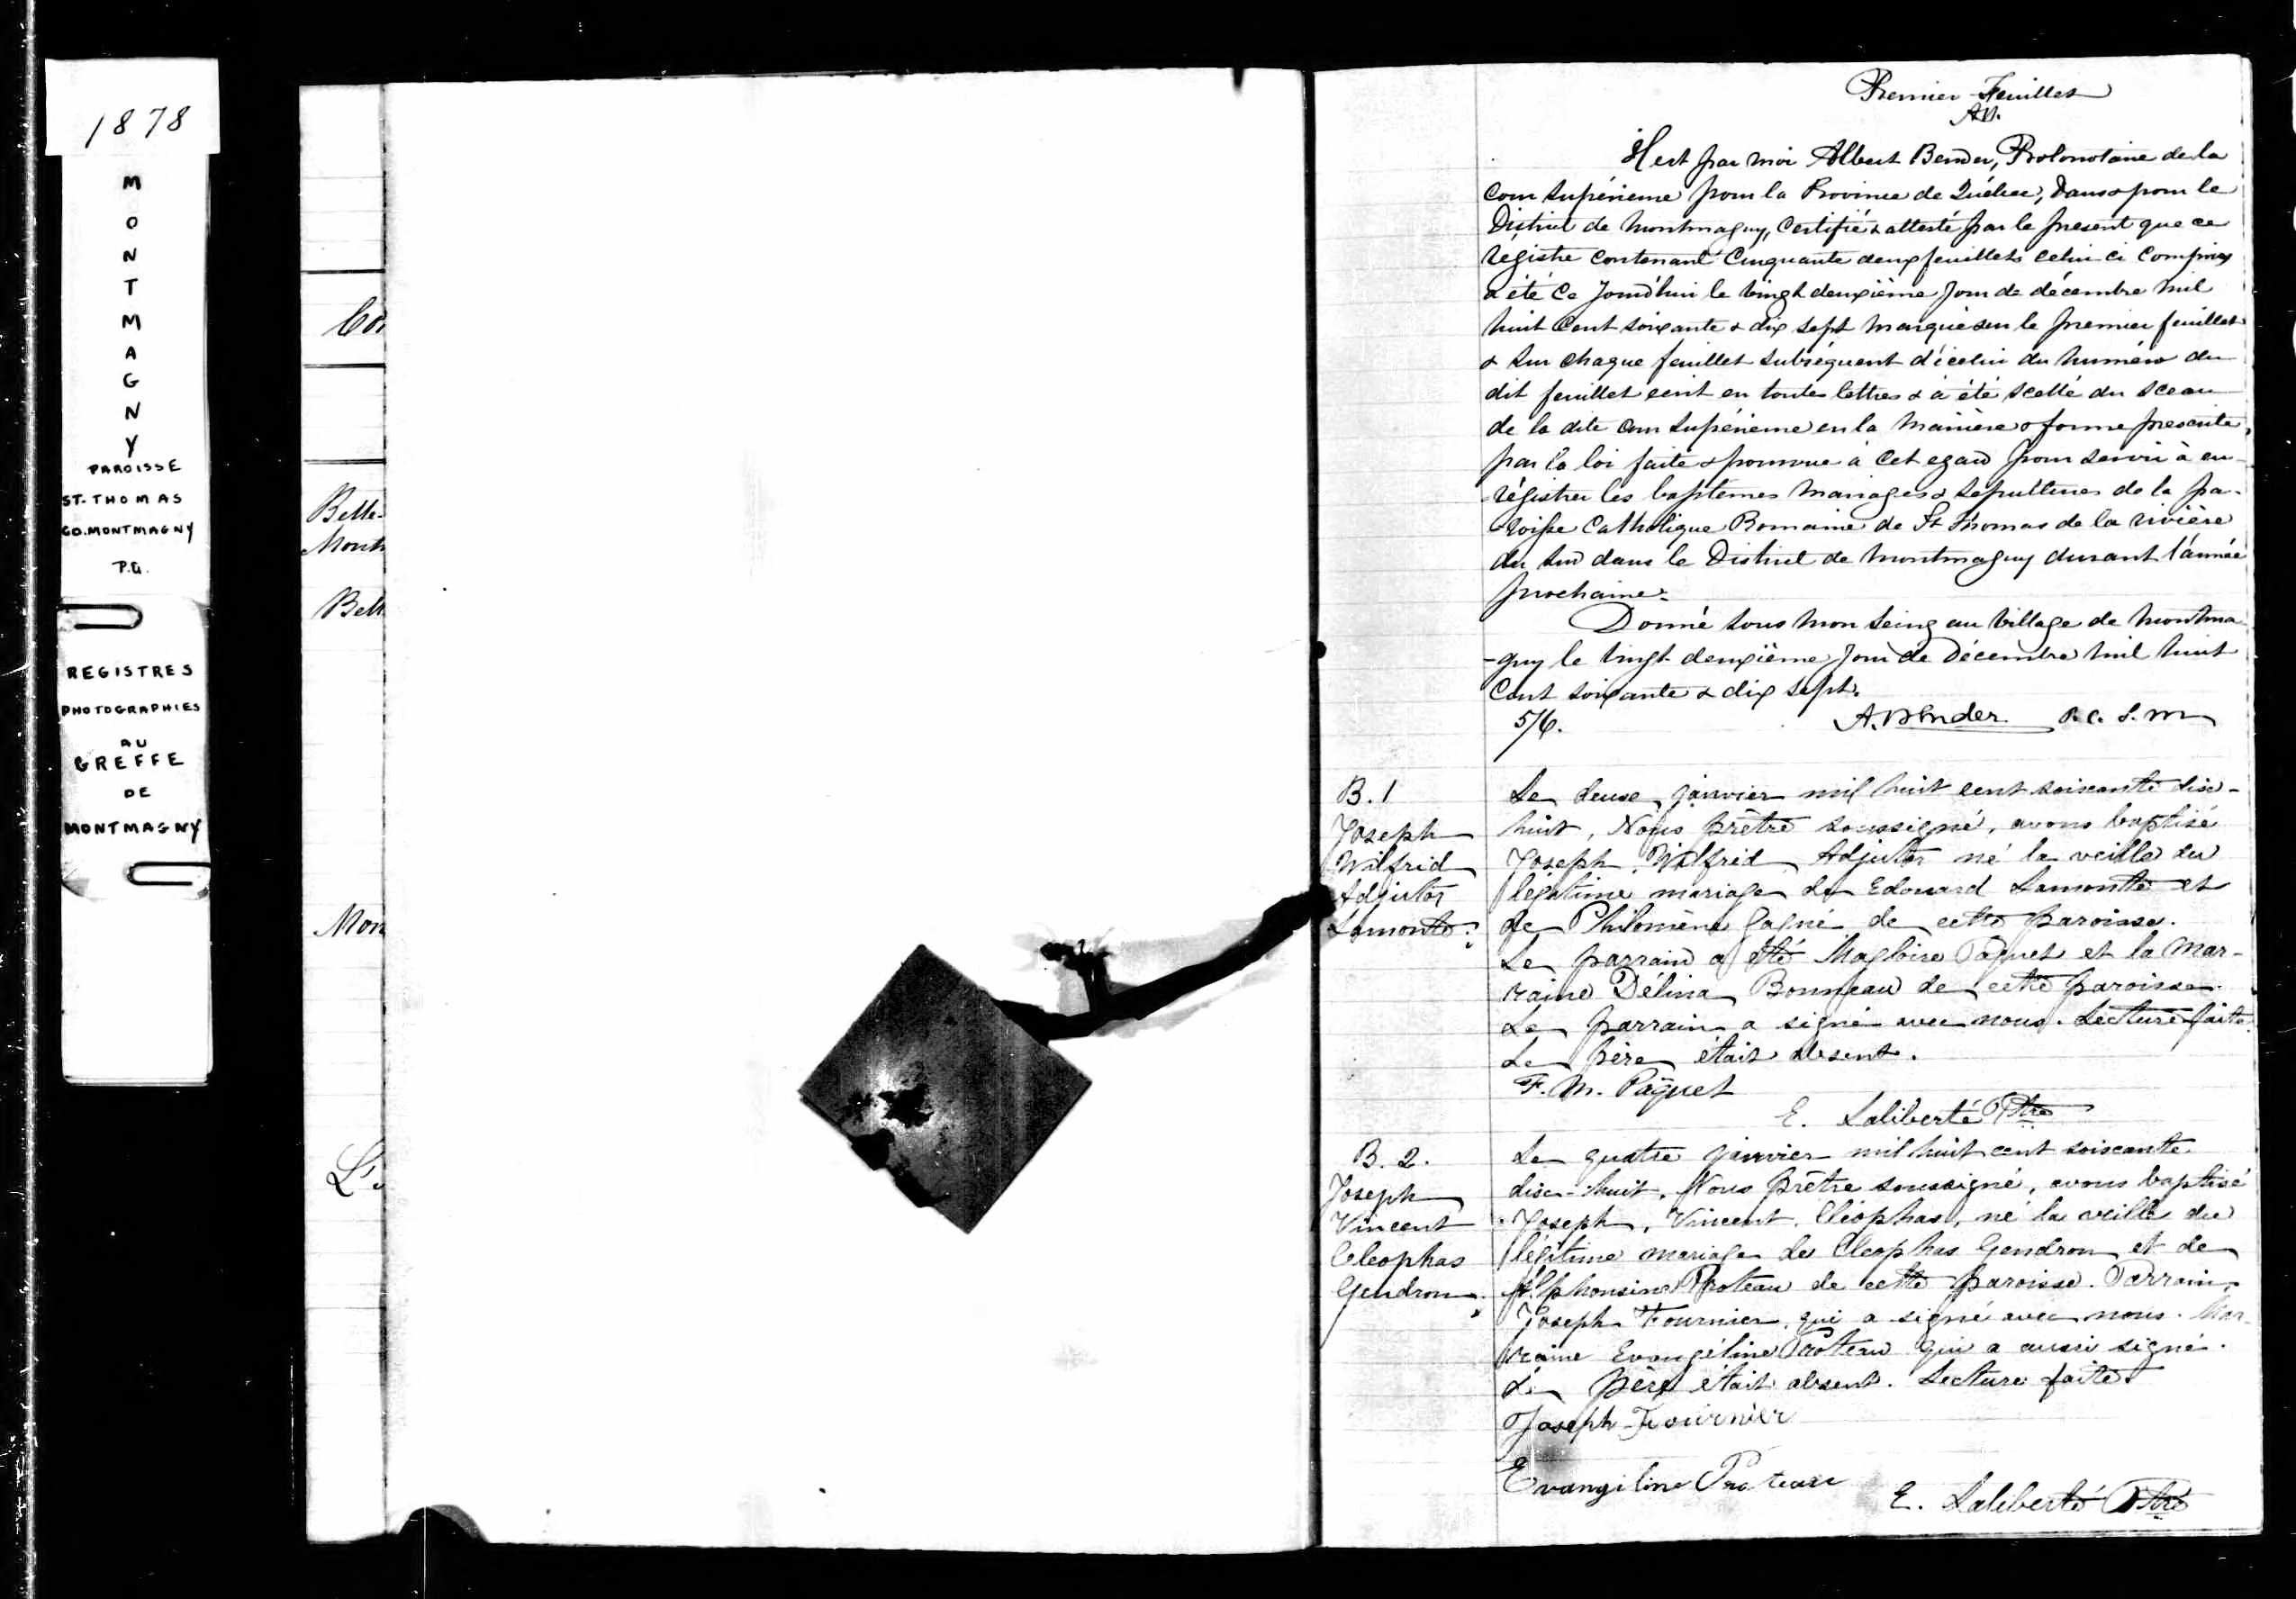 1878
M
O
N
T
M
A
G
N
Y
PAROISSE
ST-THOMAS
CO. MONTMAGNY
P.Q.
REGISTRES
PHOTOGRAPHIES
AU
GREFFE
DE
MONTMAGNY
Con
Belle-
Mont
Bell
Mon
Premier Feuillet
A.B.
Il est par moi Albert Bender, Protonotaire de la
Cour Supérieure pour la Province de Québec, dans & pour le
District de Montmagny, Certifié & attesté par le present que ce
régistre contenant Cinquante deux feuillets celui ci compris
a été ce Jourd'hui le vingt deuxième jour de décembre mil
huit Cent soixante & dix sept marqué sur le premier feuillet
& sur chaque feuillet subséquent d'icelui du numéro du
dit feuillet ecrit en toutes lettres & a été scellé du sceau
de la dite Cour Supérieure en la manière & forme prescrite
par la loi faite & pourvue à cet egard pour servir à en-
-régistrer les baptemes mariages & sépultures de la pa-
-roisse Catholique Romaine de St Thomas de la rivière
du Sud dans le District de Montmagny durant l'année
prochaine.
Donné sous mon seing au village de Montma-
-gny le vingt deuxième Jour de Décembre mil huit
Cent soixante & dix sept.
5/6. A. Bender P. C. S. M
B. 1
Joseph
Wilfrid
Adjutor
Lamonte.
Le deuxe janvier mil huit cent soixante dix-
huit, Nous prêtre soussigné, avons baptisé
Joseph, Wilfrid Adjutor né la veille du
légitime mariage de Edouard Lamonte et
de Philomène Gagné de cette paroisse.
Le parrain a été Magloire Paquet et la Mar-
raine Délina Bonneau de cette paroisse.
Le parrain a signé avec nous. Lecture faite.
Le père était absent.
F. M. Paquet
E. Laliberté Ptre
B. 2.
Joseph
Vincent
Cleophas
Gendron.
Le quatre janvier mil huit cent soixante
dix-huit, Nous prêtre soussigné, avons baptisé
Joseph, Vincent, Cléophas, né la veille du
légitime mariage de Cleophas Gendron et de
Alphonsine Proteau de cette paroisse. Parrain,
Joseph Fournier, qui a signé avec nous. Mar-
raine Evangéline Proteau qui a aussi signé.
Le père était absent. Lecture faite.
Joseph Fournier
Evangiline Proteau
E. Laliberté Ptre